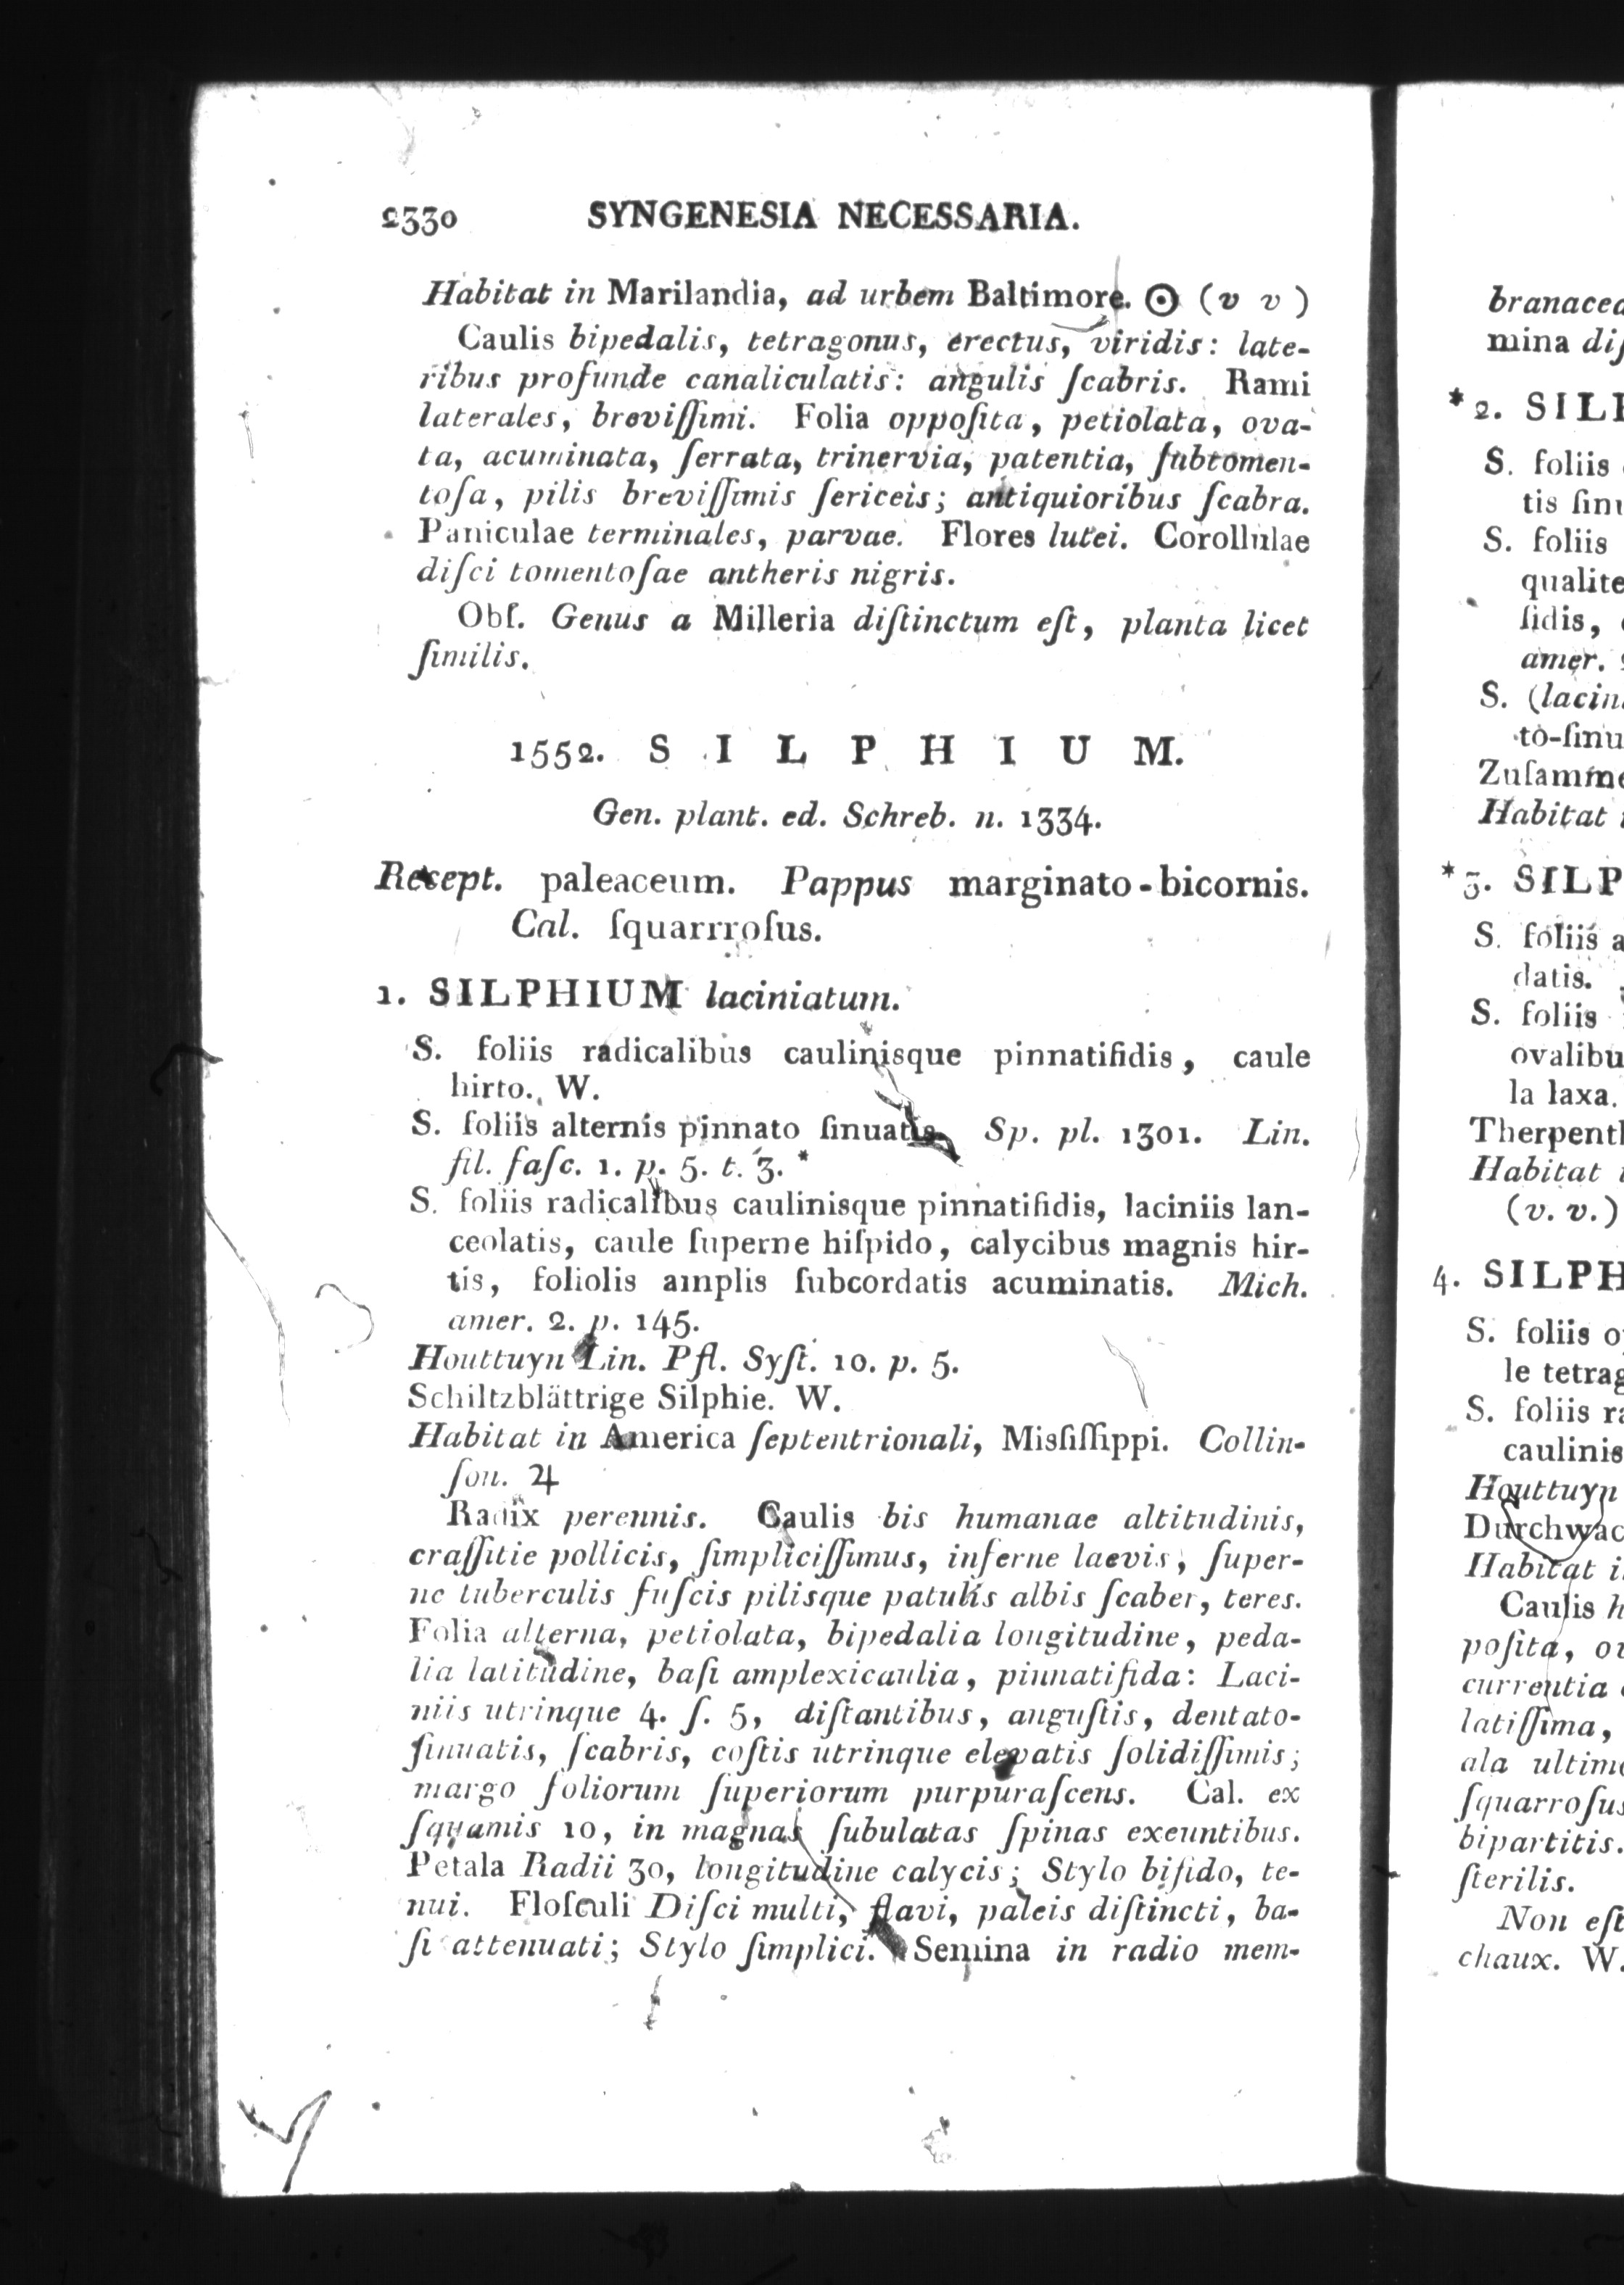 2330 SYNGENESIA NECESSARIA.
Habitat in Marilandia, ad urbem Baltimore. ☉ (v v)
Caulis bipedalis, tetragonus, erectus, viridis: late-
ribus profunde canaliculatis: angulis ſcabris. Rami
laterales, breviſſimi. Folia oppoſita, petiolata, ova-
ta, acuminata, ſerrata, trinervia, patentia, ſubtomen-
toſa, pilis breviſſimis ſericeis; antiquioribus ſcabra.
Paniculae terminales, parvae. Flores lutei. Corollulae
diſci tomentoſae antheris nigris.
Obſ. Genus a Milleria diſtinctum eſt, planta licet
ſimilis.
1552. SILPHIUM.
Gen. plant. ed. Schreb. n. 1334.
Recept. paleaceum. Pappus marginato-bicornis.
Cal. ſquarrroſus.
1. SILPHIUM laciniatum.
S. foliis radicalibus caulinisque pinnatifidis, caule
hirto. W.
S. foliis alternis pinnato ſinuatis. Sp. pl. 1301. Lin.
fil. faſc. 1. p. 5. t. 3. *
S. foliis radicalibus caulinisque pinnatifidis, laciniis lan-
ceolatis, caule ſuperne hiſpido, calycibus magnis hir-
tis, foliolis amplis ſubcordatis acuminatis. Mich.
amer. 2. p. 145.
Houttuyn Lin. Pfl. Syſt. 10. p. 5.
Schiltzblättrige Silphie. W.
Habitat in America ſeptentrionali, Misſiſſippi. Collin-
ſon. ♃
Radix perennis. Caulis bis humanae altitudinis,
craſſitie pollicis, ſimpliciſſimus, inferne laevis, ſuper-
ne tuberculis fuſcis pilisque patulis albis ſcaber, teres.
Folia alterna, petiolata, bipedalia longitudine, peda-
lia latitudine, baſi amplexicaulia, pinnatifida: Laci-
niis utrinque 4. ſ. 5, diſtantibus, anguſtis, dentato-
ſinuatis, ſcabris, coſtis utrinque elevatis ſolidiſſimis;
margo foliorum ſuperiorum purpuraſcens. Cal. ex
ſquamis 10, in magnas ſubulatas ſpinas exeuntibus.
Petala Radii 30, longitudine calycis; Stylo bifido, te-
nui. Floſculi Diſci multi, flavi, paleis diſtincti, ba-
ſi attenuati; Stylo ſimplici. Semina in radio mem-
branacea
mina diſ
*2. SILP
S. foliis
tis ſinu
S. foliis
qualite
ſidis,
amer.
S. (lacin
to-ſinu
Zuſamme
Habitat
*3. SILP
S. foliis a
datis.
S. foliis
ovalibu
la laxa.
Therpenth
Habitat
(v. v.)
4. SILPH
S. foliis o
le tetrag
S. foliis ra
caulinis
Houttuyn
Durchwac
Habitat i
Caulis h
poſita, ov
currentia
latiſſima,
ala ultim
ſquarroſus
bipartitis.
ſterilis.
Non eſt
chaux. W.